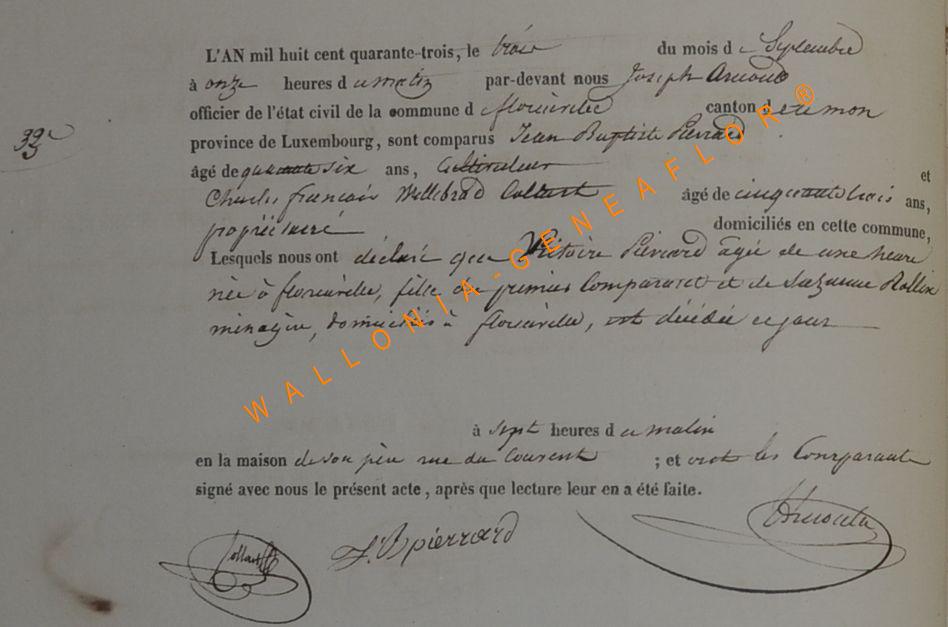 L'AN mil huit cent quarante-trois, le trois du mois de Septembre
à onze heures du matin par-devant nous Joseph Arnould
officier de l'état civil de la commune de florenville canton d
province de Luxembourg, sont comparus Jean Baptiste Pierrard
33e
âgé de quarante six ans, Cultivateur et
Charles françois Willibrod Collart âgé de cinquante trois ans,
propriétaire domiciliés en cette commune,
Lesquels nous ont déclaré que Victoire Pierrard âgée de une heure
née à florenville, fille du premier Comparant et de Suzanne Rollin
ménagère, domiciliés à florenville, est décédée ce jour
à sept heures du matin
en la maison de son père rue du ; et ont les Comparants
signé avec nous le présent acte, après que lecture leur en a été faite.
Collart J. B pierrard Arnould
WALLONIA-GENEAFLOR®